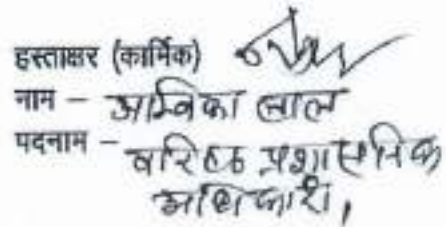 हस्ताक्षर (कार्मिक)
नाम – अम्बिका लाल
पदनाम – वरिष्ठ प्रशासनिक
अधिकारी,